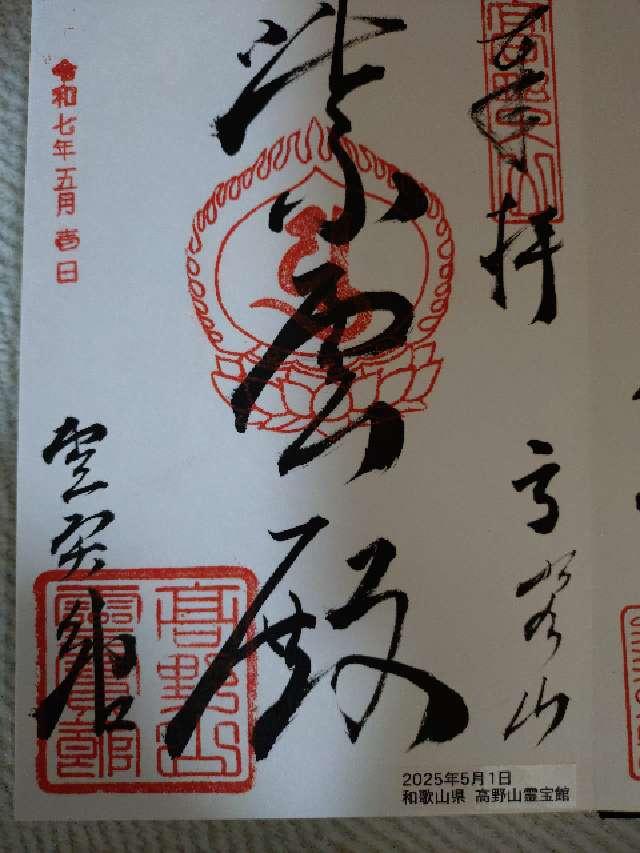 奉拝
高野山
高野山
紫雲殿
令和七年五月壱日
霊宝館
高野山
霊寶館
2025年5月1日
和歌山県 高野山霊宝館